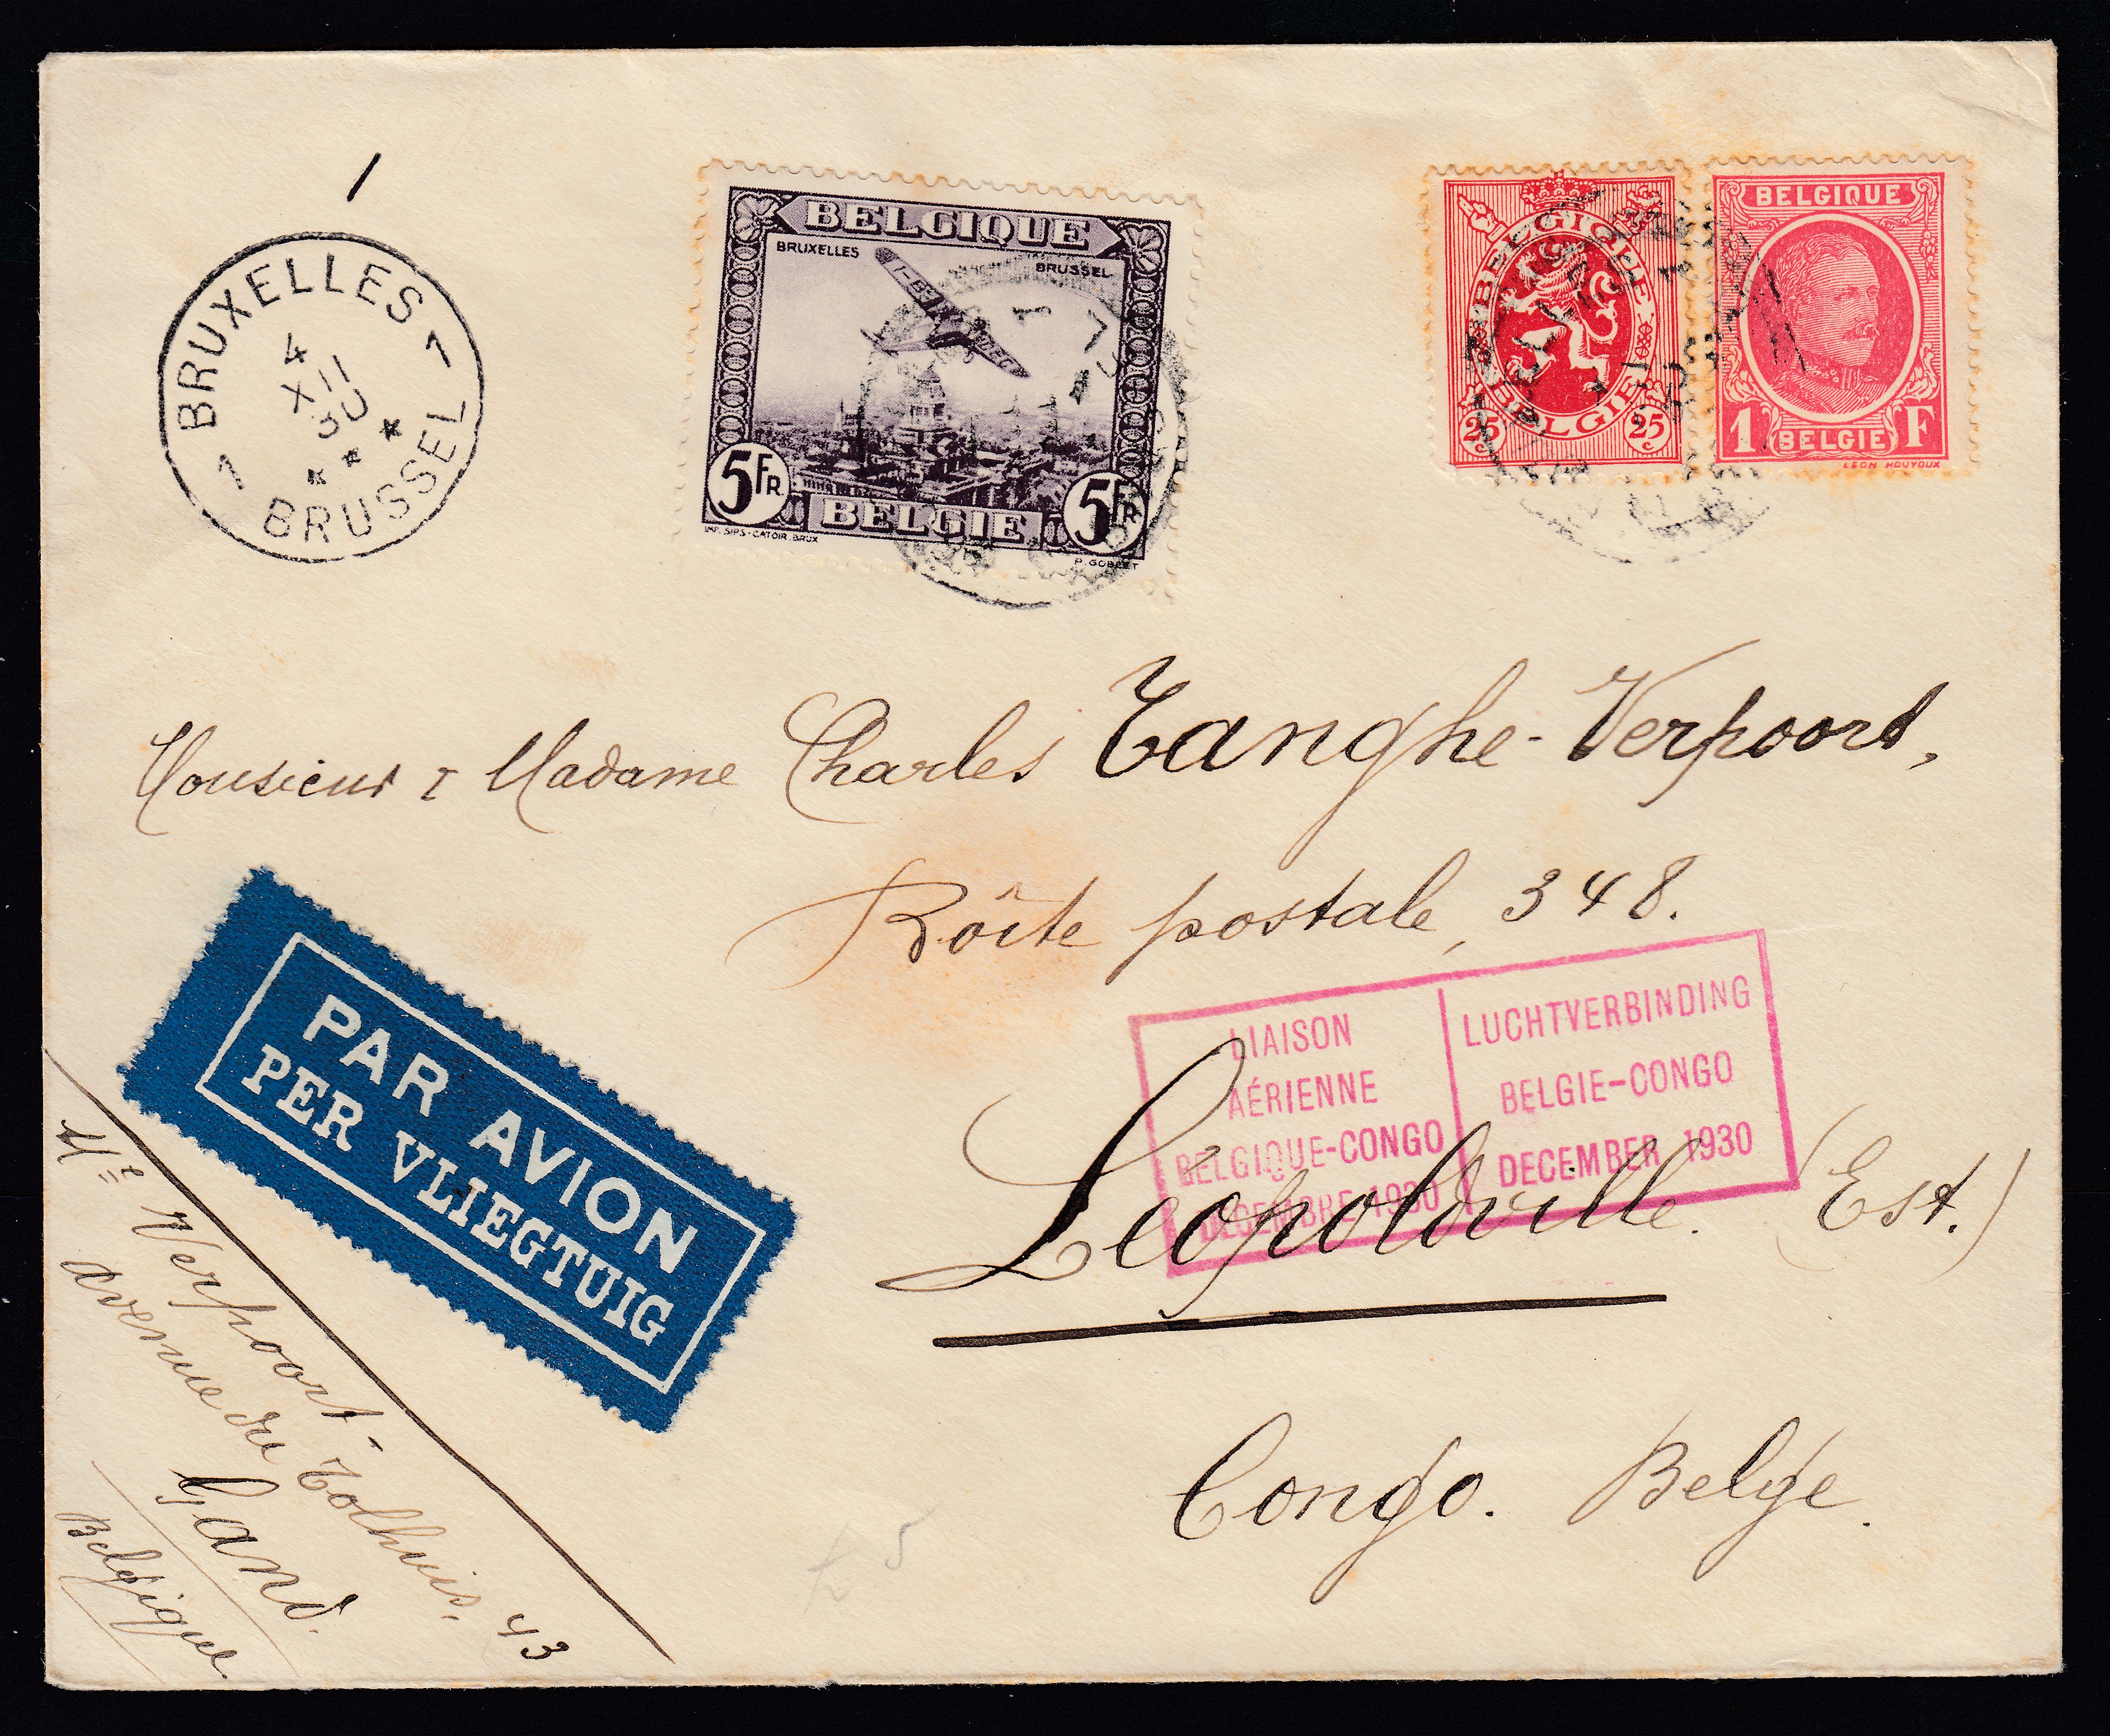 1 BRUXELLES 1
4
XII
30
BRUSSEL
BELGIQUE
BRUXELLES
BRUSSEL
5 FR. 5 FR.
BELGIE
IMP. SIPS-CATOIR. BRUX
P. GOBERT
BELGIQUE
25 c 25 c
BELGIE
BELGIQUE
1 BELGIE F
LEON HOUYOUX
Monsieur & Madame Charles Tanghe-Verpoort,
Boîte postale, 348.
LIAISON
AÉRIENNE
BELGIQUE-CONGO
DECEMBRE 1930
LUCHTVERBINDING
BELGIE-CONGO
DECEMBER 1930
Léopoldville. (Est.)
Congo. Belge.
PAR AVION
PER VLIEGTUIG
Verpoort-
avenue du Tolhuis, 43
Gand.
Belgique